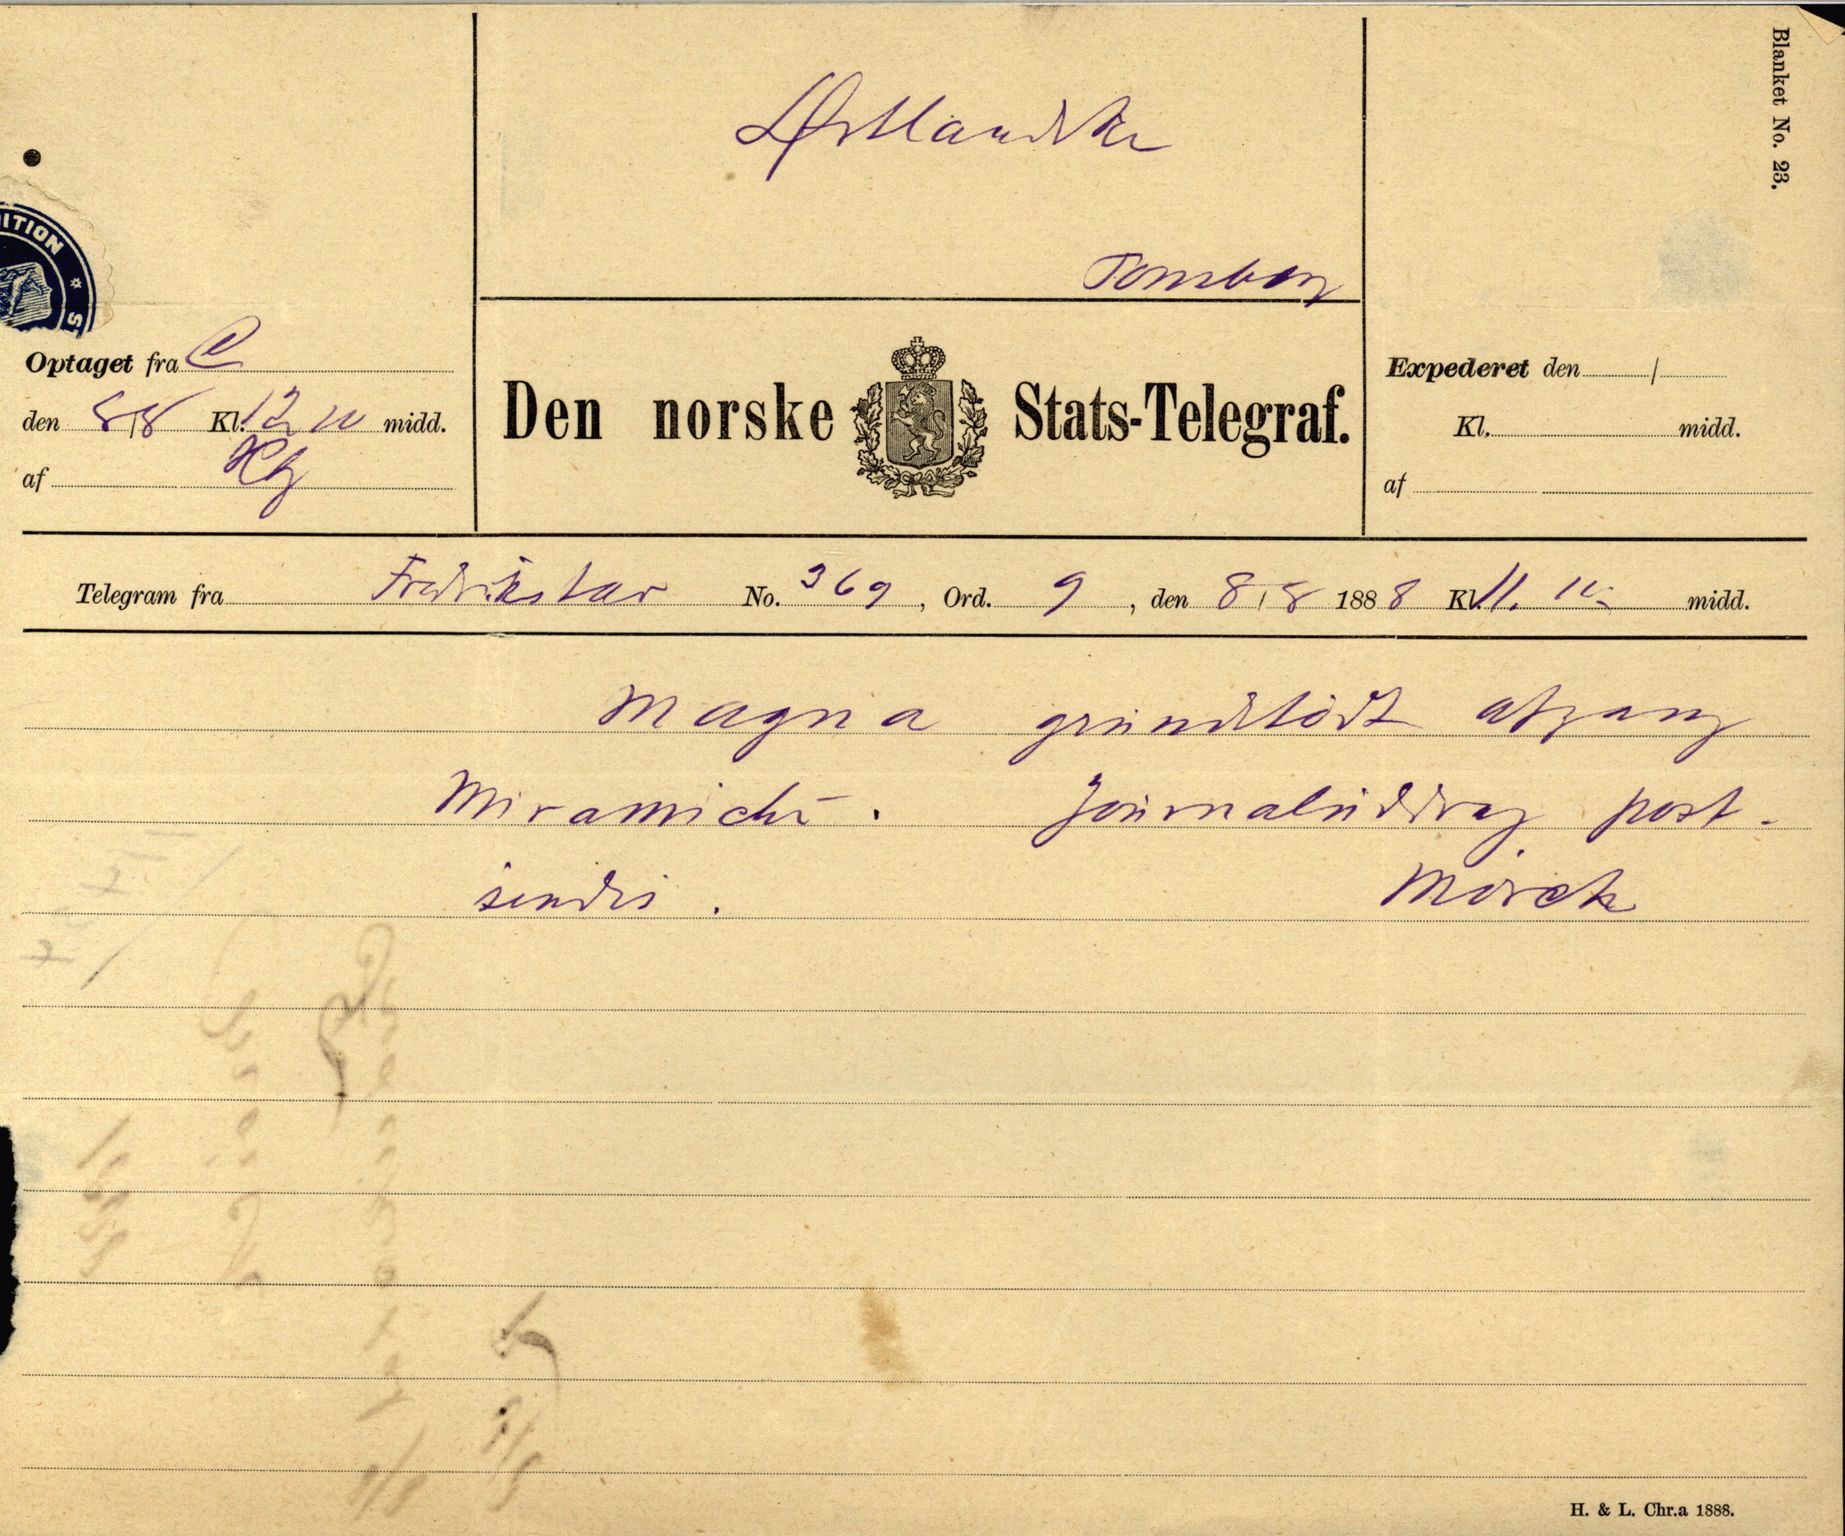 Blanket No. 23.
Østlandske
Tønsberg
ITION * S
Optaget fra C
den 8/8 Kl. 12 10 midd.
af
Den norske Stats-Telegraf.
Expederet den /
Kl. midd.
af
Telegram fra Fredrikstad No. 369, Ord. 9, den 8/8 1888 Kl. 11. 10 midd.
Magna grundstødt afgang
Miramichi. Journaluddrag post-
sendes. Mørck
H. & L. Chr.a 1888.